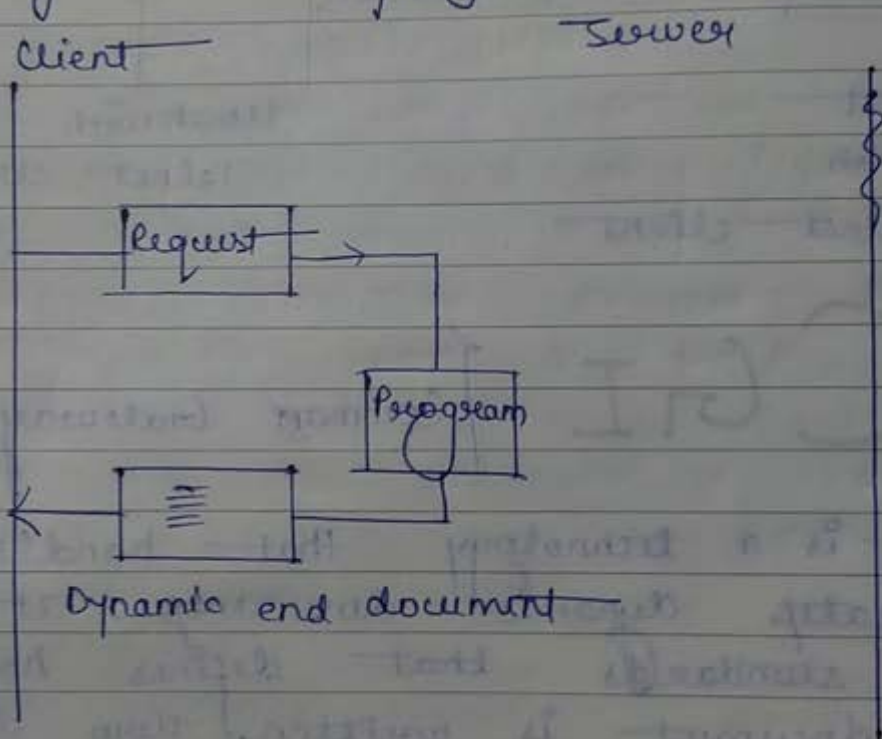 Client
Server
Request
Program
Dynamic end document